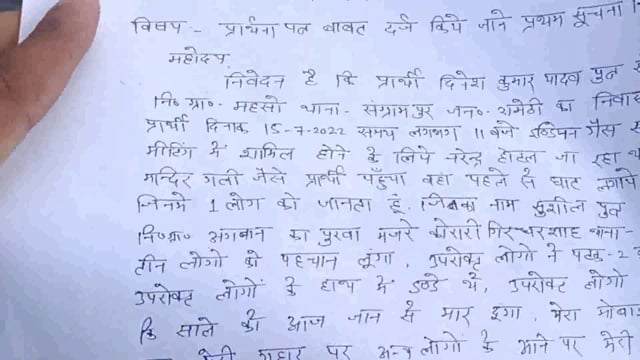 विषय - प्रार्थना पत्र बाबत दर्ज किये जाने प्रथम सूचना
महोदय,
निवेदन है कि प्रार्थी दिनेश कुमार यादव पुत्र
नि० ग्रा० - महसो थाना - संग्रामपुर जन० - अमेठी का निवासी
प्रार्थी दिनांक 15-7-2022 समय लगभग 11 बजे इण्डियन गैस
मीटिंग में शामिल होने के लिये नरेन्द्र होटल जा रहा था
मन्दिर गली जैसे प्रार्थी पहुँचा वहा पहले से घात लगाये
जिनमे 1 लोग को जानता हूं, जिसका नाम सुशील पुत्र
नि० ग्रा० भगवान का पुरवा मजरे कोरारी गिरधरशाह थाना -
तीन लोगो को पहचान लूंगा, उपरोक्त लोगो ने
उपरोक्त लोगों के हाथ में डण्डे थे, उपरोक्त लोगो
कि साले को आज जान से मार दूगा, मेरा
गुहार पर अन्य लोगो के आने पर मेरी